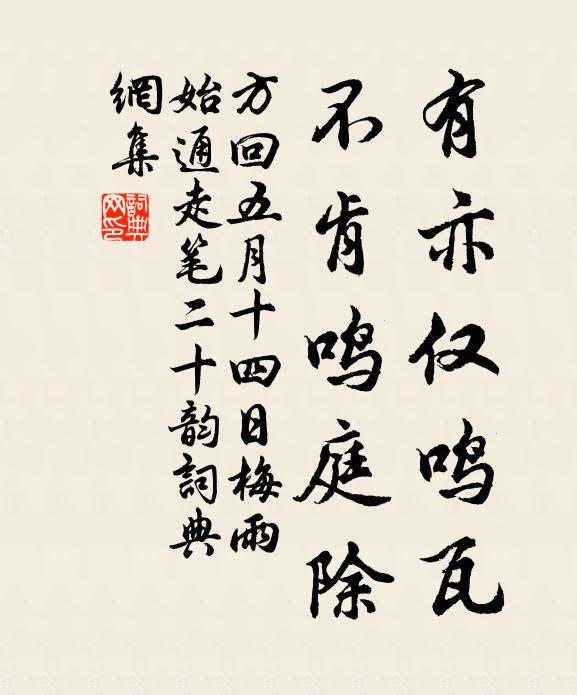 有亦仅鸣瓦
不肯鸣庭除
方回五月十四日梅雨
始通走笔二十韵詞典
網集
詞典
网印